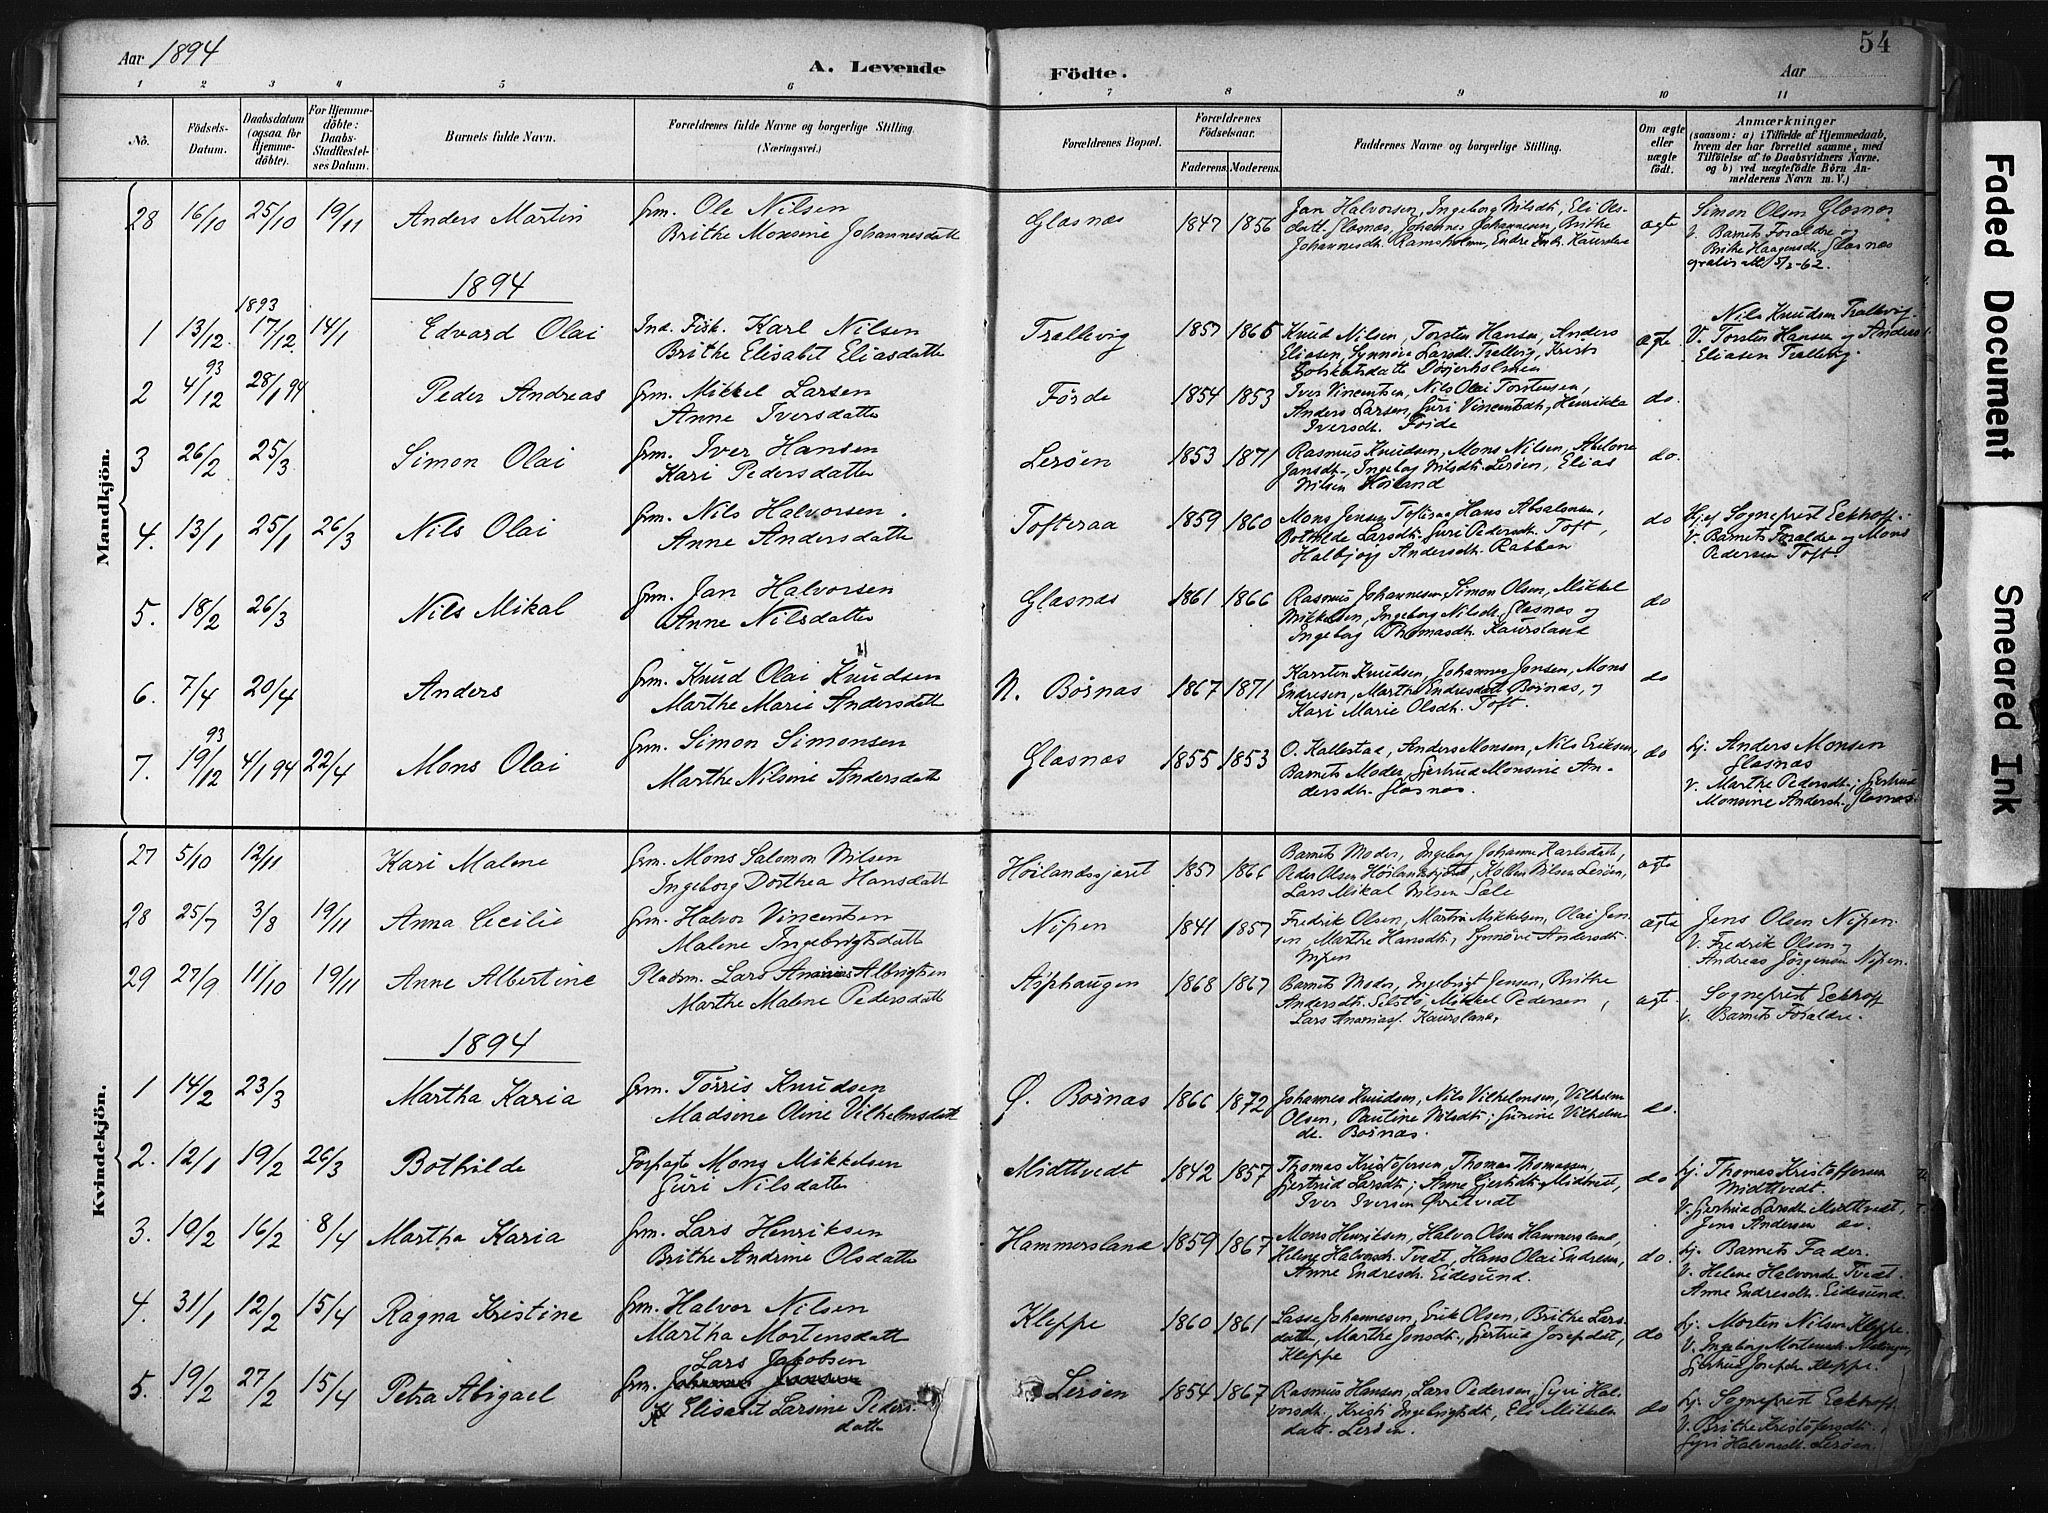 Aar 1894
A. Levende
Födte.
Aar
54
1 2 3 4 5 6 7 8 9 10 11
No.
Födsels-Datum.
Daabsdatum (ogsaa for Hjemme-döbte).
For Hjemme-döbte: Daabs-Stadfæstel-ses Datum.
Barnets fulde Navn.
Forældrenes fulde Navne og borgerlige Stilling. (Næringsvei.)
Forældrenes Bopæl.
Forældrenes Födselsaar.
Faderens. Moderens.
Faddernes Navne og borgerlige Stilling.
Om ægte eller uægte födt.
Anmærkninger
(saasom: a) i Tilfælde af Hjemmedaab, hvem der har forrettet samme, med Tilföielse af to Daabsvidners Navne, og b) ved uægtefödte Börn Anmelderens Navn m. V.)
Mandkjön.
28 16/10 25/10 19/11 Anders Martin Grm. Ole Nilsen
Brithe Monsine Johannesdatt
Glasnæs 1847 1856 Jan Halvorsen, Ingeborg Nilsdt, Eli Ols-
datt. Glasnæs, Johannes Johannesen, Brithe
Johannesdt. Ramsholm, Endre
ægte
Simon Olsen Glasnæs
V. Barnets Forældre og
Brithe Haagensdt. Glasnæs
gratis att. 5/2-62.
1894
1893
1 13/12 17/12 14/1 Edvard Olai Ind. Fisk. Karl Nilsen
Brithe Elisabet Eliasdatte
Trællevig 1857 1865 Knud Nilsen, Torsten Hansen, Anders
Eliasen, Synnøve Larsdt. Trællevig, Kristi
ægte
Nils Knudsen Trællevig
V. Torsten Hansen og Anders
Eliasen Trællevig.
93
2 4/12 28/1 94 Peder Andreas Grm. Mikkel Larsen
Anne Iversdatte
Førde 1854 1853 Iver Vincentsen, Nils Olai Torstensen,
Anders Larsen, Guri Vincentsdt, Henrikka
Iversdt. Førde
do.
3 26/2 25/3 Simon Olai Grm. Iver Hansen
Kari Pedersdatte
Lerøen 1853 1871 Rasmus Knudsen, Mons Nilsen, Abelone
Jansdt., Ingebog Nilsdt. Lerøen, Elias
Nilsen Høiland
do.
4. 13/1 25/1 26/3 Nils Olai Grm. Nils Halvorsen.
Anne Andersdatte
Tofteraa 1859 1860 Mons Jensen Tofteraa, Hans Absalonsen,
Bothilde Larsdt. Guri Pedersdt. Toft,
Halbjørg Andersdt. Rabben
do
Hj. af Sogneprest Eckhoff.
V. Barnets Forældre og Mons
Pedersen Toft.
5. 18/2 26/3 Nils Mikal Grm. Jan Halvorsen
Anne Nilsdatte
Glasnæs 1861 1866 Rasmus Johannesen, Simon Olsen, Mikkel
Mikkelsen, Ingeborg Nilsdt. Glasnæs og
Ingebog Thomasdt. Kaursland
do
6. 7/4 20/4 Anders Grm. Knud Olai Knudsen
Marthe Marie Andersdatt
N. Børnæs 1867 1871 Karsten Knudsen, Johannes Jonsen, Mons
Endresen, Marthe Endresdatt Børnæs, og
Kari Marie Olsdt. Toft.
do
93
7. 19/12 4/1 94 22/4 Mons Olai Grm. Simon Simonsen
Marthe Nilsine Andersdatt
Glasnæs 1855 1853 O. Kallestad, Anders Monsen, Nils Eriksen,
Barnets Moder, Gjertrud Monsine An-
dersdt. Glasnæs.
do
hj. Anders Monsen
Glasnæs
V. Marthe Pedersdt., Gjertrud
Monsine Andersdt., Glasnæs.
Kvindekjön.
27 5/10 12/11 Kari Malene Grm. Mons Salomon Nilsen
Ingeborg Dorthea Hansdatt
Høilandssjøret 1857 1866 Barnets Moder, Ingeborg Johanne Karlsdatt,
Peder Olsen Høilandssjøret, Nilsen Lerøen,
Lars Mikal Nilsen Sæle
ægte
28 25/7 3/8 19/11 Anna Cecilie Grm. Halvor Vincentsen
Malene Ingebrigtsdatt
Nipen 1841 1857 Fredrik Olsen, Martin Mikkelsen, Olai Jen-
sen, Marthe Hansdt., Synnøve Andersdt.
Nipen
ægte
Jens Olsen Nipen.
V. Fredrik Olsen og
Andreas Jørgensen Nipen.
29 27/9 11/10 19/11 Anne Albertine Pladsm. Lars Ananias Albrigtsen
Marthe Malene Pedersdatt
Asphaugen 1868 1867 Barnets Moder, Ingebrigt Jensen, Brithe
Andersdt. Selstø, Mikkel Pedersen,
Lars Ananiasf. Kaursland.
ægt.
Sogneprest Eckhoff
V. Barnets Forældre.
1894
1 14/2 23/3 Martha Karia Grm. Tørris Knudsen
Madsine Oline Vilhelmsdatt
Ø. Børnæs 1866 1872 Johannes Knudsen, Nils Vilhelmsen, Vilhelm
Olsen, Pauline Nilsdt., Gurine Vilhelms-
dt. Børnæs.
do.
2. 12/1 19/2 26/3 Bothilde Forpagt. Mons Mikkelsen
Guri Nilsdatte
Midttvedt 1842 1857 Thomas Kristofersen, Thomas Thomassen,
Gjertrud Larsdt., Anne Gjertsdt. Midttvedt,
Iver Iversen Øvretvedt
do
hj. Thomas Kristoffersen
Midttvedt.
V. Gjertrud Larsdt. Midttvedt,
Jens Andersen do.
3. 19/2 16/2 8/4 Martha Karia Grm. Lars Henriksen
Brithe Andrine Olsdatte
Hammersland 1859 1867 Mons Henriksen, Halvor Olsen Hammersland,
Helene Halvorsdt. Tvedt, Hans Olai Endresen,
Anne Endresdt. Eidesund.
do.
hj. Barnets Fader.
V. Helene Halvorsdt Tvedt.
Anne Endresdt. Eidesund.
4. 31/1 12/2 15/4 Ragna Kristine Grm. Halvor Nilsen
Martha Mortensdatt
Kleppe 1860 1861 Lasse Johannesen, Erik Olsen, Brithe Lars-
datte, Marthe Jonsdt., Gjertrud Josefdatt,
Kleppe
do
hj. Morten Nilsen Kleppe.
V. Ingeborg Mortensdt.
Gjertrud Josefdt. Kleppe.
5. 19/2 27/2 15/4 Petra Abigael Grm. Lars Jakobsen
Elisabet Larsine Peders-
datte
Lerøen 1854 1867 Rasmus Hansen, Lars Pedersen, Gyri Hal-
vorsdt., Kristi Ingebrigtsdt., Eli Mikkels-
datt. Lerøen.
do
hj. Sogneprest Eckhoff.
V. Brithe Kristofersdt.,
Gyri Halvorsdt. Lerøen.
Faded Document
Smeared Ink